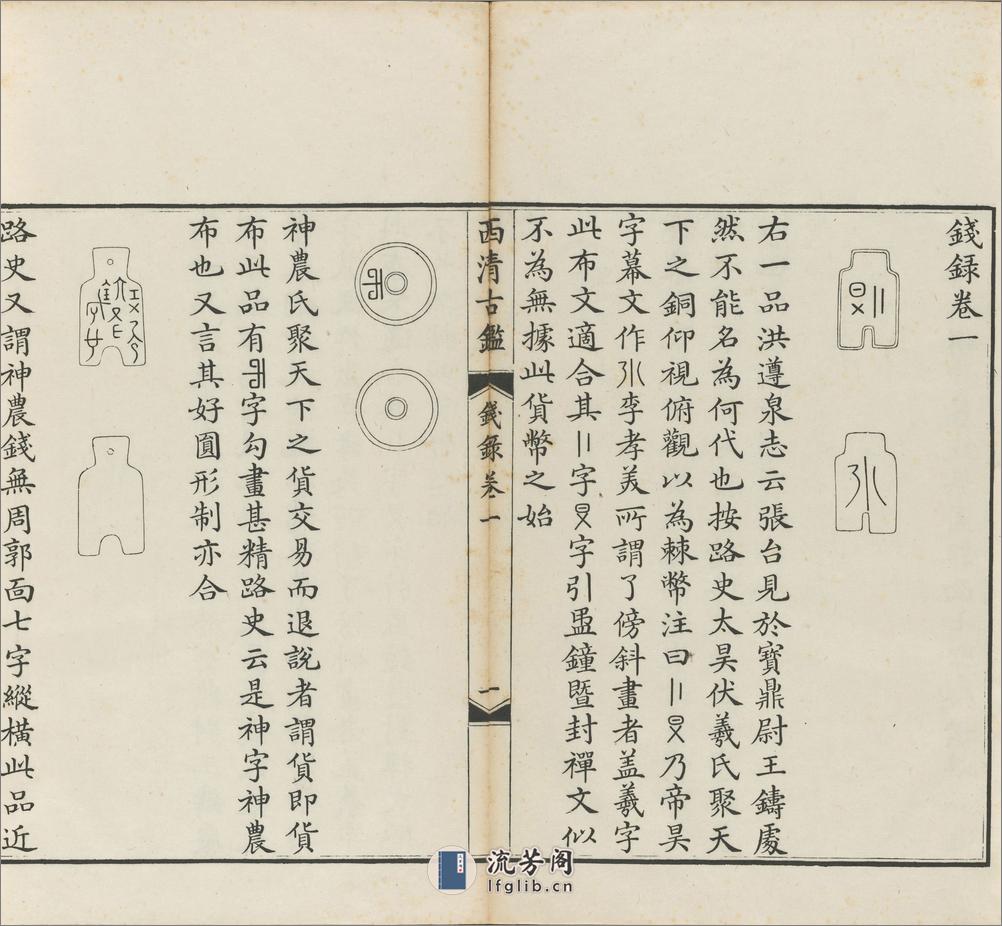 錢録卷一
右一品洪遵泉志云張台見於寳鼎尉王鑄處
然不能名為何代也按路史太昊伏羲氏聚天
下之銅仰視俯觀以為棘幣注曰〢乃帝昊
字幕文作李孝美所謂了傍斜畫者盖羲字
此布文適合其〢字字引盄鐘暨封禪文似
不為無據此貨幣之始
西清古鑑
錢録卷一
一
神農氏聚天下之貨交易而退說者謂貨即貨
布此品有字勾畫甚精路史云是神字神農
布也又言其好圓形制亦合
路史又謂神農錢無周郭面七字縱橫此品近
流芳阁
lfglib.cn